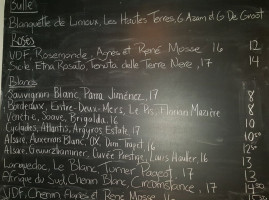 Bulle
Blanquette de Limoux, Les Hautes Terres, G Azam & G De Groot
Rosés 12
VDF, Rosemonde, Agnès et René Mosse 16 12
Sicile, Etna Rosato, Tenuta delle Terre Nere, 17 14
Blancs
Sauvignon Blanc, Parra Jiménez, 17 8
Bordeaux, Entre-Deux-Mers, Le Bis, Florian Mazière 8
Vénétie, Soave, Brigalda, 16 10
Cyclades, Atlantis, Argyros Estate, 17 10
Alsace, Auxerrois Blanc, Dom. Trapet, 16 10⁵⁰
Alsace, Gewurztraminer, Cuvée Prestige, Louis Hauler, 16 12⁵⁰
Languedoc, Le Blanc, Turner Pageot, 17 13
Afrique du Sud, Chenin Blanc, Circumstance, 17 13
SIDF, Chenin, Agnès et René Mosse 16 14⁵⁰